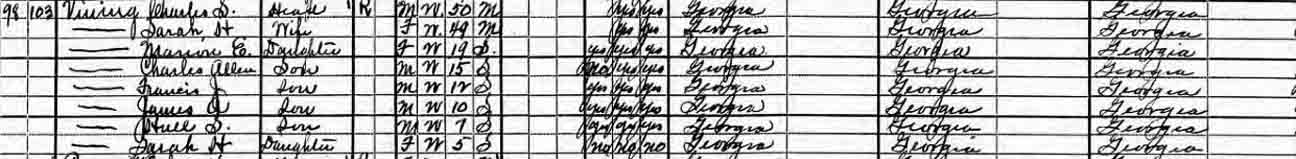 98 103 Vining Charles S. Head R M W 50 M yes yes Georgia Georgia Georgia
— Sarah H Wife F W 49 M yes yes Georgia Georgia Georgia
— Marion E. Daughter F W 19 S. yes yes yes Georgia Georgia Georgia
— Charles Allen Son M W 15 S no yes yes Georgia Georgia Georgia
— Francis J Son M W 12 S yes yes yes Georgia Georgia Georgia
— James Son M W 10 S yes yes yes Georgia Georgia Georgia
— Hull S. Son M W 7 S yes yes yes Georgia Georgia Georgia
— Sarah H Daughter F W 5 S no no no Georgia Georgia Georgia